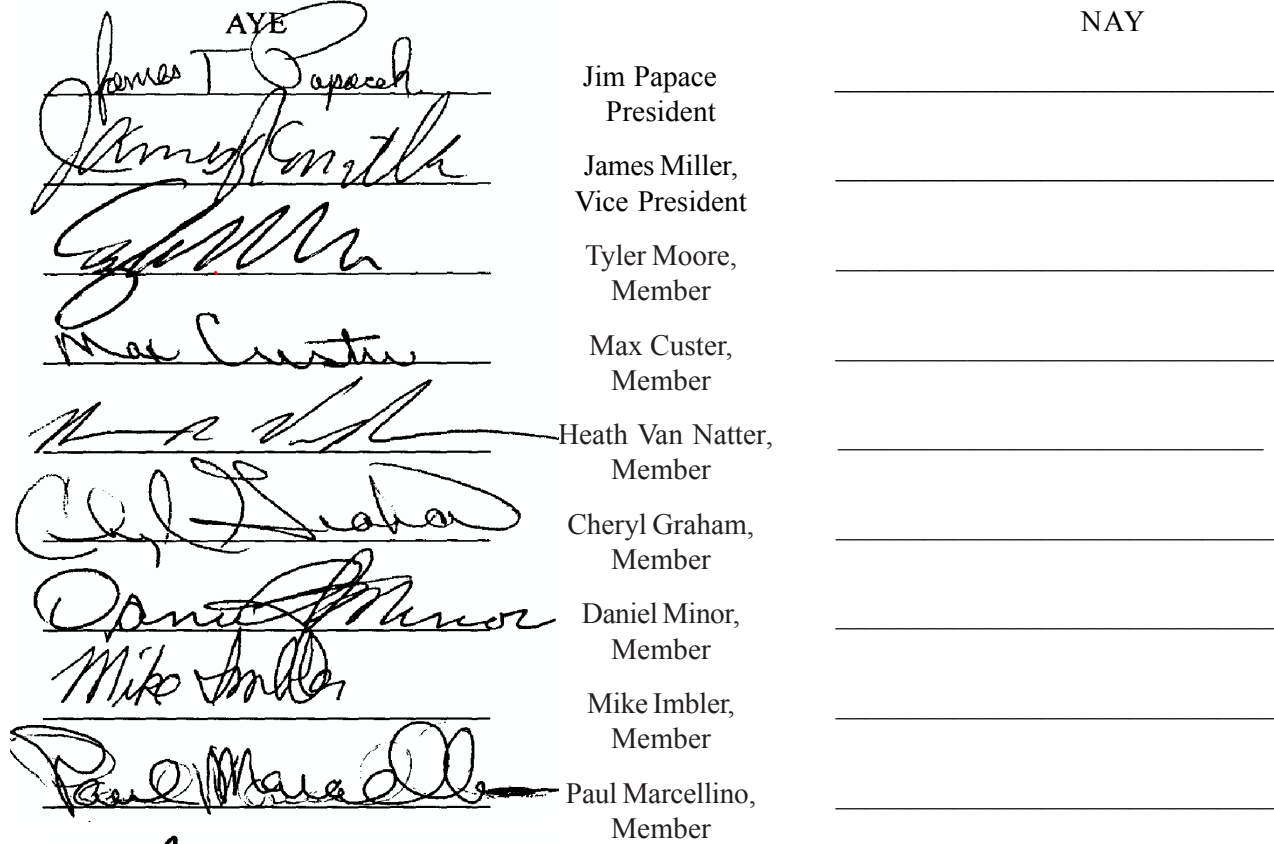 AYE NAY
James T Papace Jim Papace
President
James Miller,
Vice President
Tyler Moore,
Member
Max Custer Max Custer,
Member
Heath Van Natter,
Member
Cheryl Graham Cheryl Graham,
Member
Daniel Minor Daniel Minor,
Member
Mike Imbler Mike Imbler,
Member
Paul Marcellino,
Member